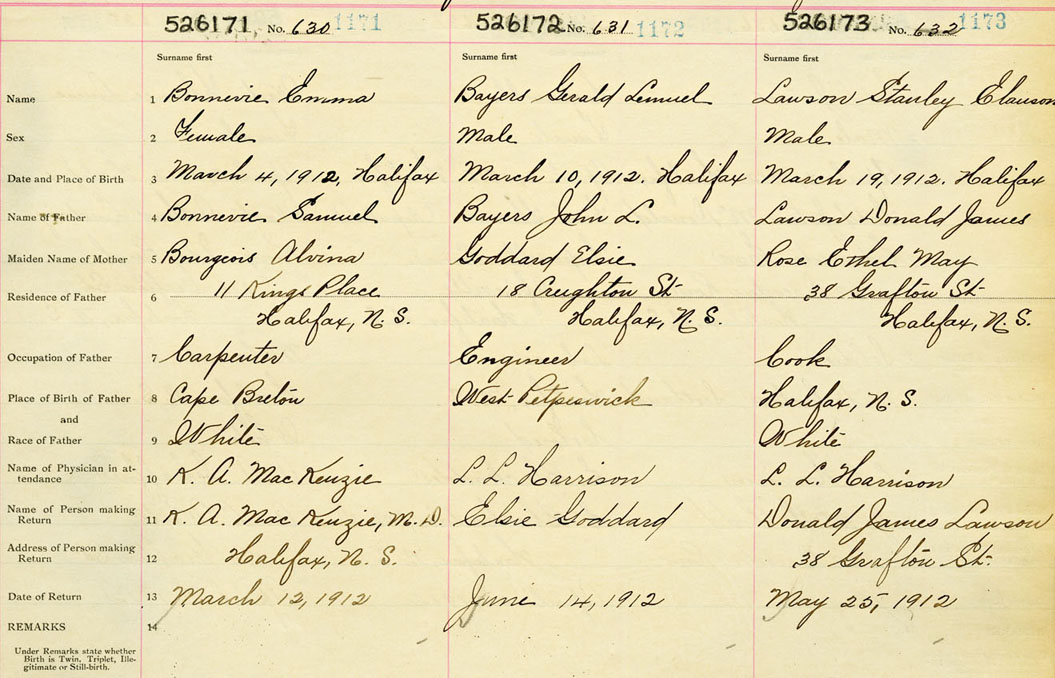 526171 No. 630 1171 526172 No. 631 1172 526173 No. 632 1173
Surname first Surname first Surname first
Name 1 Bonnevie Emma Bayers Gerald Lemuel Lawson Stanley Clauson
Sex 2 Female Male Male
Date and Place of Birth 3 March 4, 1912, Halifax March 10, 1912. Halifax March 19, 1912. Halifax
Name of Father 4 Bonnevie Samuel Bayers John L. Lawson Donald James
Maiden Name of Mother 5 Bourgeois Alvina Goddard Elsie Rose Ethel May
Residence of Father 6 11 Kings Place 18 Creighton St 38 Grafton St
Halifax, N. S. Halifax, N. S. Halifax, N. S.
Occupation of Father 7 Carpenter Engineer Cook
Place of Birth of Father 8 Cape Breton West Petpeswick Halifax, N. S.
and
Race of Father 9 White White
Name of Physician in at-
tendance 10 K. A. MacKenzie L. L. Harrison L. L. Harrison
Name of Person making
Return 11 K. A. MacKenzie, M. D. Elsie Goddard Donald James Lawson
Address of Person making
Return 12 Halifax, N. S. 38 Grafton St.
Date of Return 13 March 12, 1912 June 14, 1912 May 25, 1912
REMARKS 14
Under Remarks state whether
Birth is Twin, Triplet, Ille-
gitimate or Still-birth.